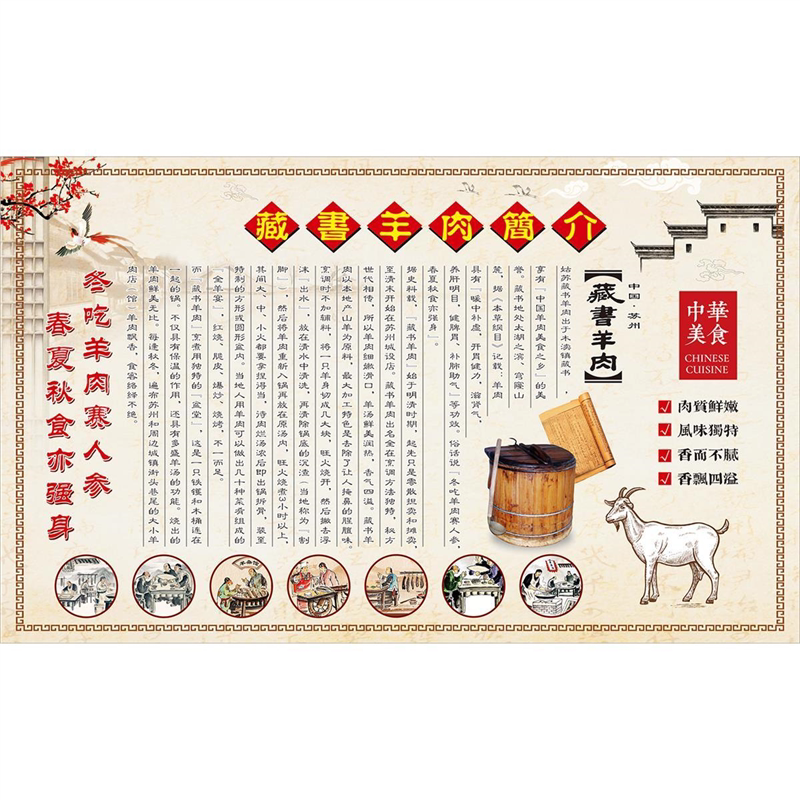 藏書羊肉簡介
中華
美食
CHINESE
CUISINE
肉質鮮嫩
風味獨特
香而不膩
香飄四溢
中国·苏州
【藏書羊肉】
姑苏藏书羊肉出于木渎镇藏书，
享有「中国羊肉美食之乡」的美
誉。藏书地处太湖之滨、穹窿山
麓，据《本草纲目》记载：羊肉
具有「暖中补虚，开胃健力，滋肾气，
养肝明目，健脾胃，补肺助气」等功效。俗话说「冬吃羊肉赛人参，
春夏秋食亦强身」。
据史料载，「藏书羊肉」始于明清时期，起先只是零散织卖和摊卖，
至清末开始在苏州城设店。藏书羊肉出名全在烹调方法独特，秘方
世代相传，所以羊肉细嫩滑口，羊汤鲜美润热，香气四溢。藏书羊
肉以本地产山羊为原料，最大加工特色是去除了让人掩鼻的腥膻味。
烹调时不加辅料，将一只羊身切成几大块，旺火烧开，然后撇去浮
沫「出水」，放在清水中清洗，再清除锅底的沉渣（当地称为「割
脚」），然后将羊肉重新入锅再放在原汤内，旺火烧煮3小时以上，
其间大、中、小火都要拿捏得当，待肉烂汤浓后即出锅拆骨，装至
特制的方形或圆形盆内。当地人用羊肉可以做出几十种菜肴组成的
「全羊宴」，红烧、脆皮、爆炒、烧烤，不一而足。
而「藏书羊肉」烹煮用独特的「盆堂」，这是一只铁镬和木桶连在
一起的锅。不仅具有保温的作用，还具有多盛羊汤的功能。烧出的
羊肉鲜美无比。每逢秋冬，遍布苏州和周边城镇街头巷尾的大小羊
肉店（馆）羊肉飘香，食客络绎不绝。
冬吃羊肉赛人参
春夏秋食亦强身